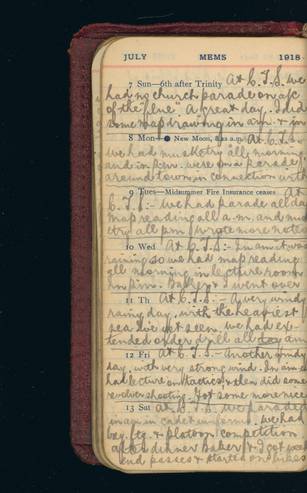 JULY MEMS 1918
7 Sun—6th after Trinity At C.T.S. We
had no church parade on a/c
of the "flue". A great day. I did
some map drawing in a.m. & in
8 Mon—● New Moon, 8.22 a.m. At C.T.S.
we had musketry all morning
and in p.m. were on a parade
around town in connection with
9 Tues—Midsummer Fire Insurance ceases At
C.T.S:- We had parade all day
map reading all a.m. and mus
etry all p.m. Wrote more notes
10 Wed At C.T.S:- In a.m. it was
raining so we had map reading
all morning in lecture room
In p.m. Baker & I went over
11 Th At C.T.S. - A very windy
rainy day, with the heaviest
sea I've yet seen. We had ex-
tended order drill all day
12 Fri At C.T.S - Another windy
day, with very strong wind. In a.m.
had lecture on tactics & then did some
revolver shooting. Got some more nice
13 Sat At C.T.S. We paraded
in a.m. in cadet uniforms. We had
bay. ftg. & platoon competition
After dinner Baker & I got week
end passes & started on bikes